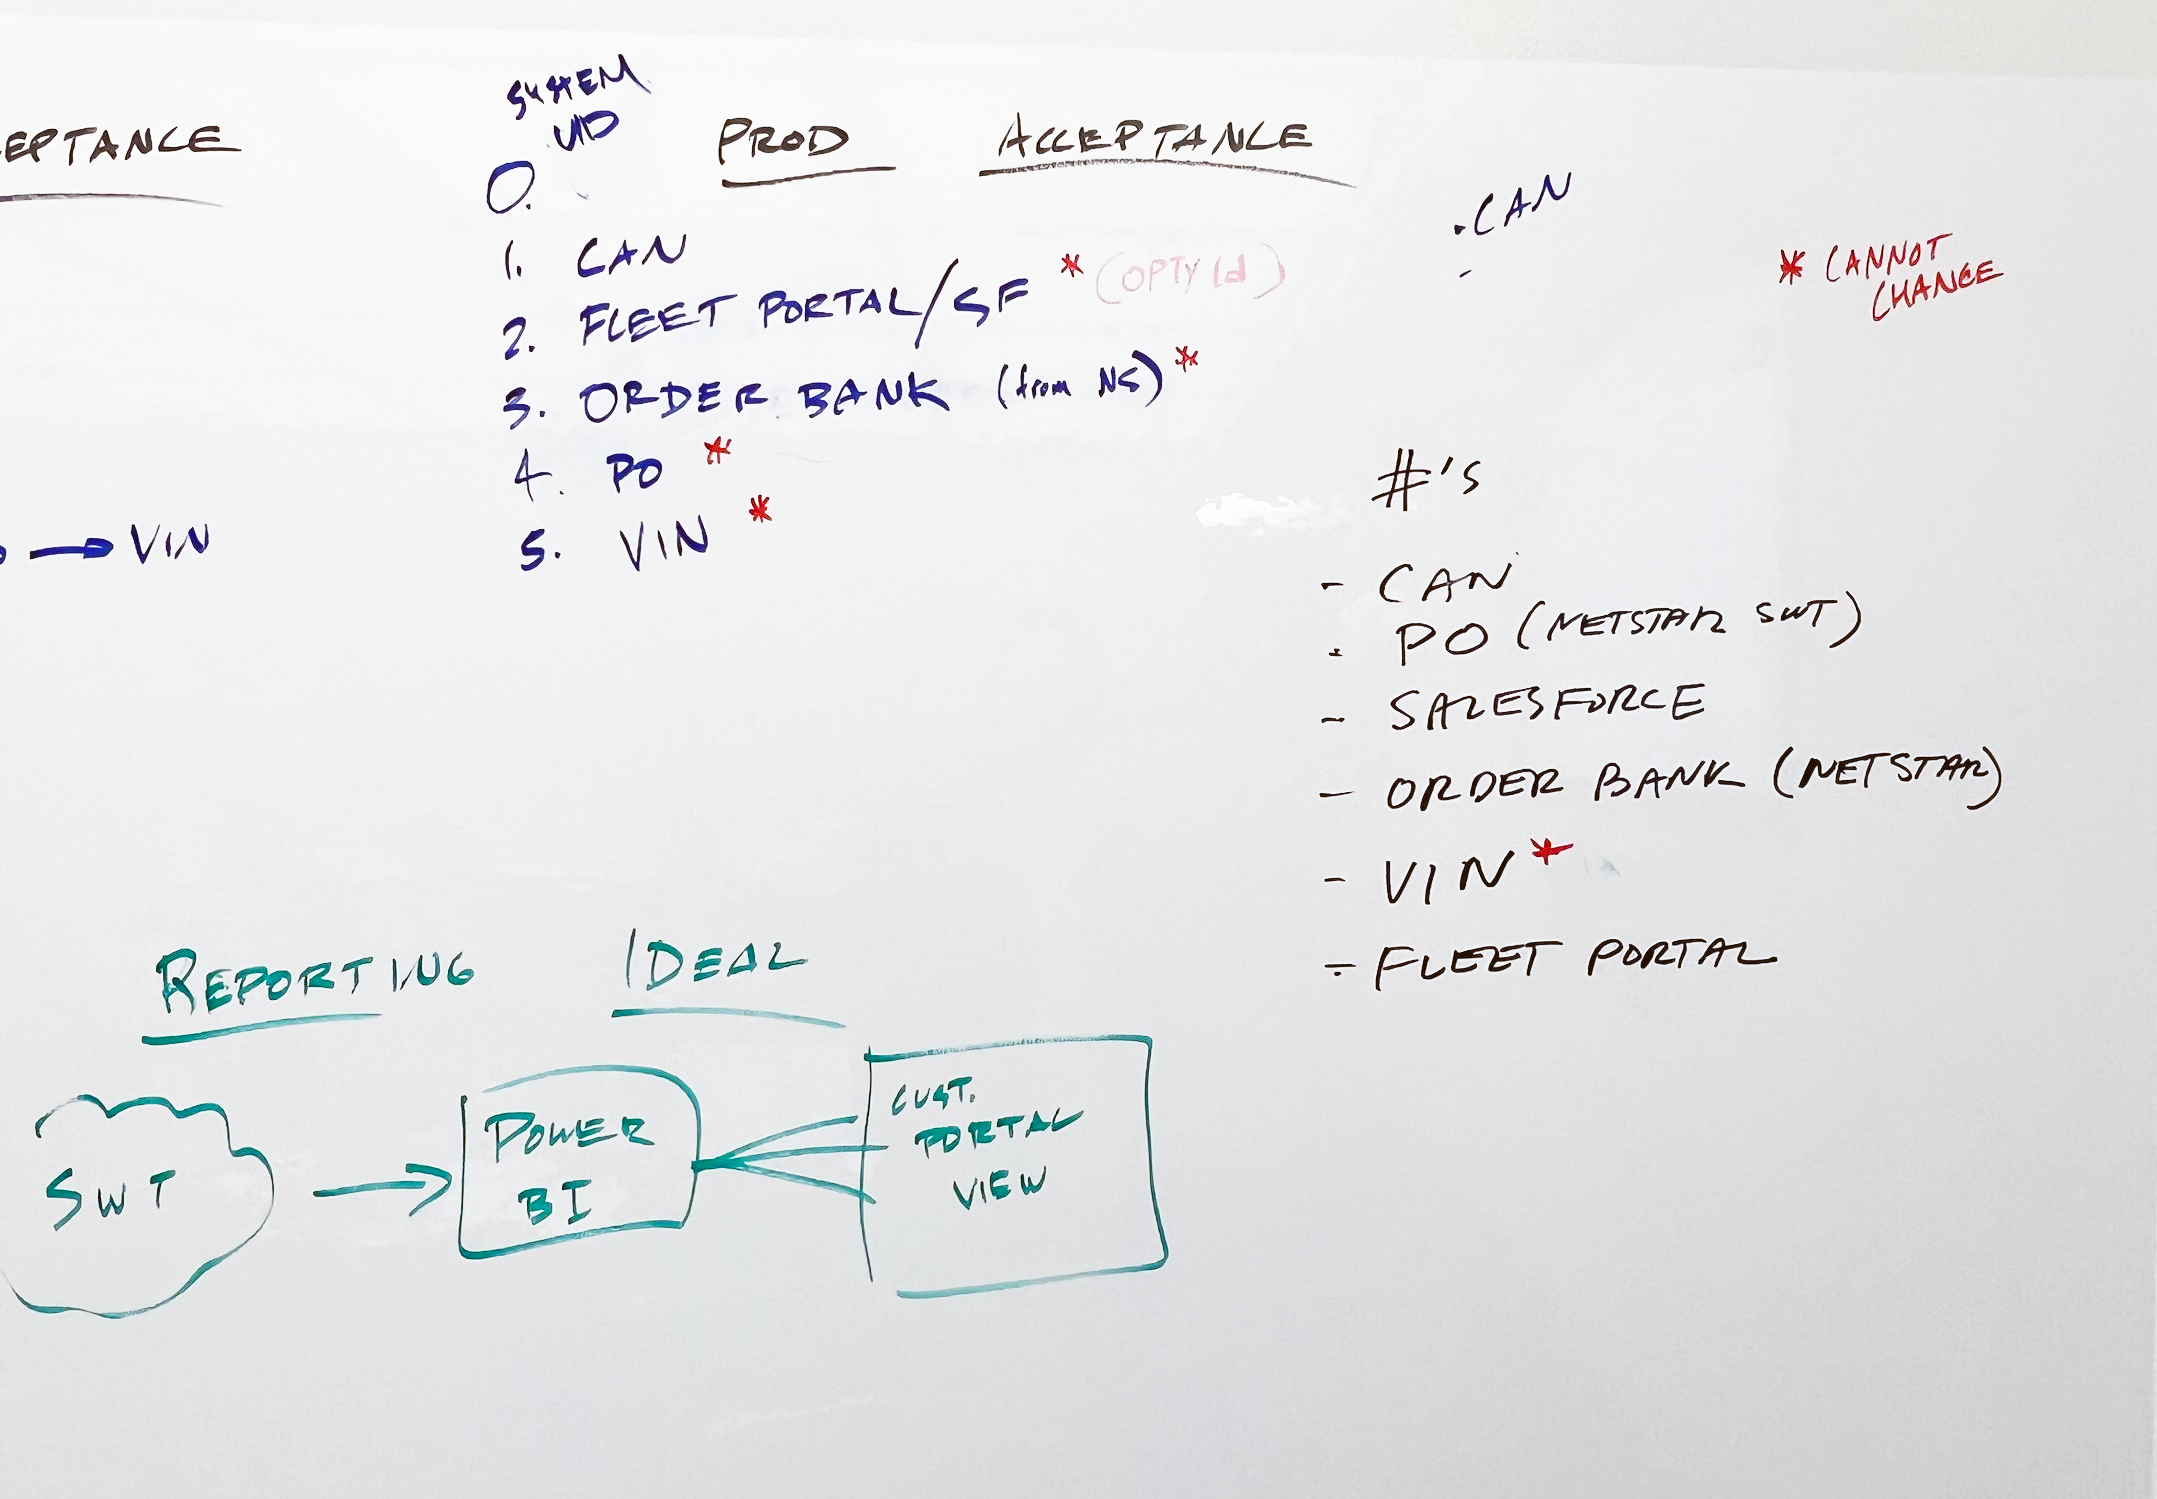 EPTANCE
SYSTEM
UID
PROD ACCEPTANCE
0.
1. CAN
2. FLEET PORTAL/SF * (OPTY Id)
3. ORDER BANK (from NS) *
4. PO *
5. VIN *
→ VIN
. CAN
-
* CANNOT
CHANGE
#'S
- CAN
. PO (NETSTAR SWT)
- SALESFORCE
- ORDER BANK (NETSTAR)
- VIN *
- FLEET PORTAL
REPORTING IDEAL
SWT
→
POWER
BI
CUST.
PORTAL
VIEW